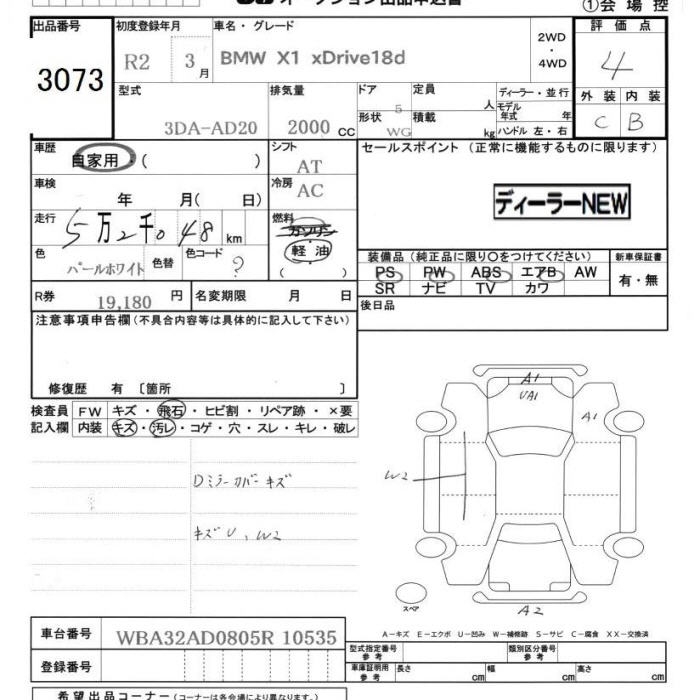 オークション出品申込書
①会場控
出品番号 初度登録年月 車名・グレード 評価点
3073 R2 3月 BMW X1 xDrive18d 2WD・4WD 4
型式 排気量 ドア 定員 ディーラー・並行 外装 内装
3DA-AD20 2000 CC 5 人 モデル年式 年 C B
形状 積載 WG kg ハンドル 左・右
車歴 シフト セールスポイント (正常に機能するものに限ります)
自家用・( ) AT
車検 冷房 ディーラーNEW
年 月( 日) AC
走行 燃料
5万2千048 km ガソリン
軽油
色 色替 色コード ( ) 装備品(純正品に限り○をつけてください) 新車保証書
パールホワイト ? PS PW ABS エアB AW 有・無
SR ナビ TV カワ
R券 19,180 円 名変期限 月 日 後日品
注意事項申告欄(不具合内容等は具体的に記入して下さい)
修復歴 有 〔箇所 〕
検査員 FW キズ・飛石・ヒビ割・リペア跡・×要
記入欄 内装 キズ・汚レ・コゲ・穴・スレ・キレ・破レ
A1
UA1
A1
Dミラーカバーキズ
W2
キズU、W2
スペア
A2
A-キズ E-エクボ U-凹み W-補修跡 S-サビ C-腐食 XX-交換済
車台番号 WBA32AD0805R10535
型式指定番号 参考 類別区分番号 参考
登録番号
車庫証明用 参考 長さ cm 幅 cm 高さ cm
希望出品コーナー(コーナーは各会場により異なります。)